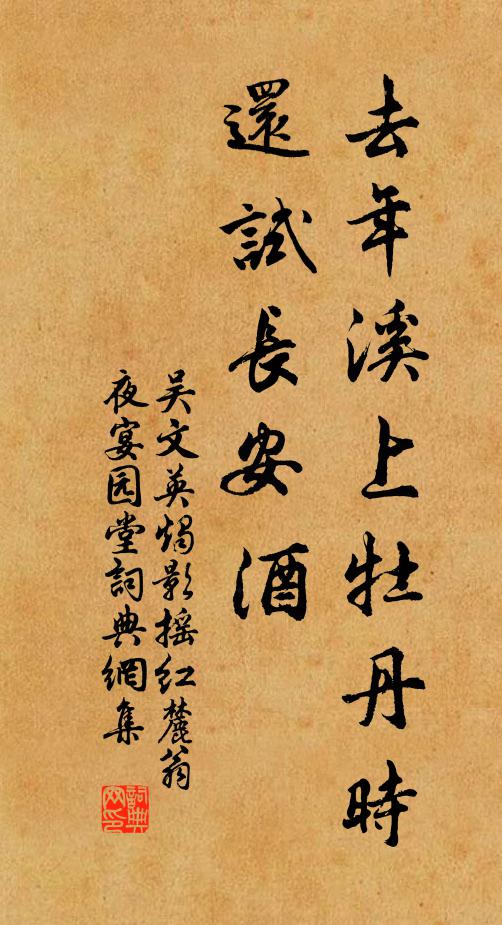 去年溪上牡丹時
還試長安酒
吴文英燭影摇红麓翁
夜宴园堂詞典網集
詞典網印